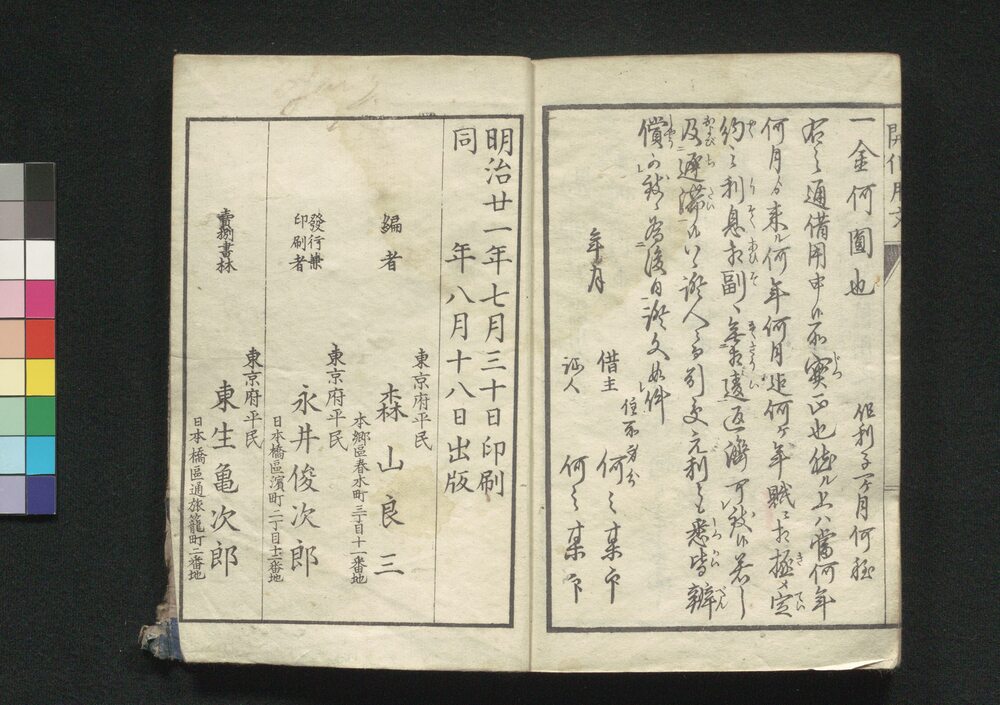 開化用文
一金何圓也
但利子一ヶ月何程
右之通借用申
實正也
上ハ當何年
何月
来ル何年何月迄何ヶ年賦
定
約之利息相副
返濟
及遅滞
證人
引受元利
悉皆辨
償
為後日證文如件
年月
借主
何之某印
証人
何之某印
明治廿一年七月三十日印刷
同年八月十八日出版
編者
東京府平民
森山良三
本郷區春木町三丁目十一番地
發行兼
印刷者
東京府平民
永井俊次郎
日本橋區濱町二丁目十二番地
賣捌書林
東京府平民
東生亀次郎
日本橋區通旅籠町二番地